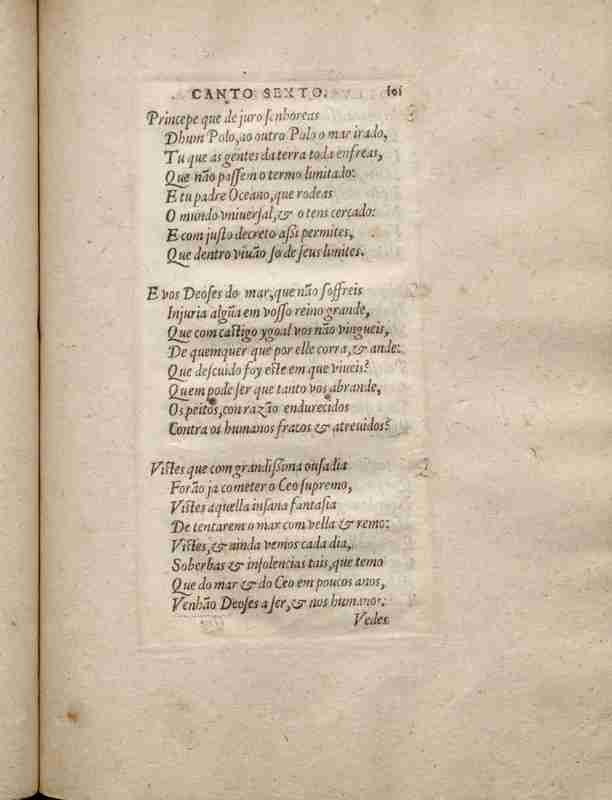 CANTO SEXTO. 101
Princepe que de juro senhoreas
Dhum Polo, ao outro Polo o mar irado,
Tu que as gentes da terra toda enfreas,
Que não passem o termo limitado:
E tu padre Oceano, que rodeas
O mundo vniuersal, & o tens cercado:
E com justo decreto assi permites,
Que dentro viuão só de seus limites.
E vos Deoses do mar, que não soffreis
Injuria algũa em vosso reino grande,
Que com castigo ygoal vos não vingueis,
De quemquer que por elle corra, & ande:
Que descuido foy este em que viueis?
Quem pode ser que tanto vos abrande,
Os peitos, con razão endurecidos
Contra os humanos fracos & atreuidos?
Vistes que com grandissima ousadia
Forão ja cometer o Ceo supremo,
Vistes aquella insana fantasia
De tentarem o mar com vella & remo:
Vistes, & ainda vemos cada dia,
Soberbas & insolencias tais, que temo
Que do mar & do Ceo em poucos anos,
Venhão Deoses a ser, & nos humanos.
Vedes